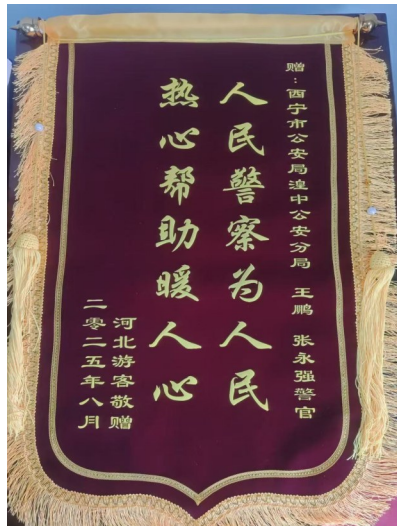 赠：西宁市公安局湟中公安分局 王鹏 张永强警官
人民警察为人民
热心帮助暖人心
河北游客敬赠
二零二五年八月